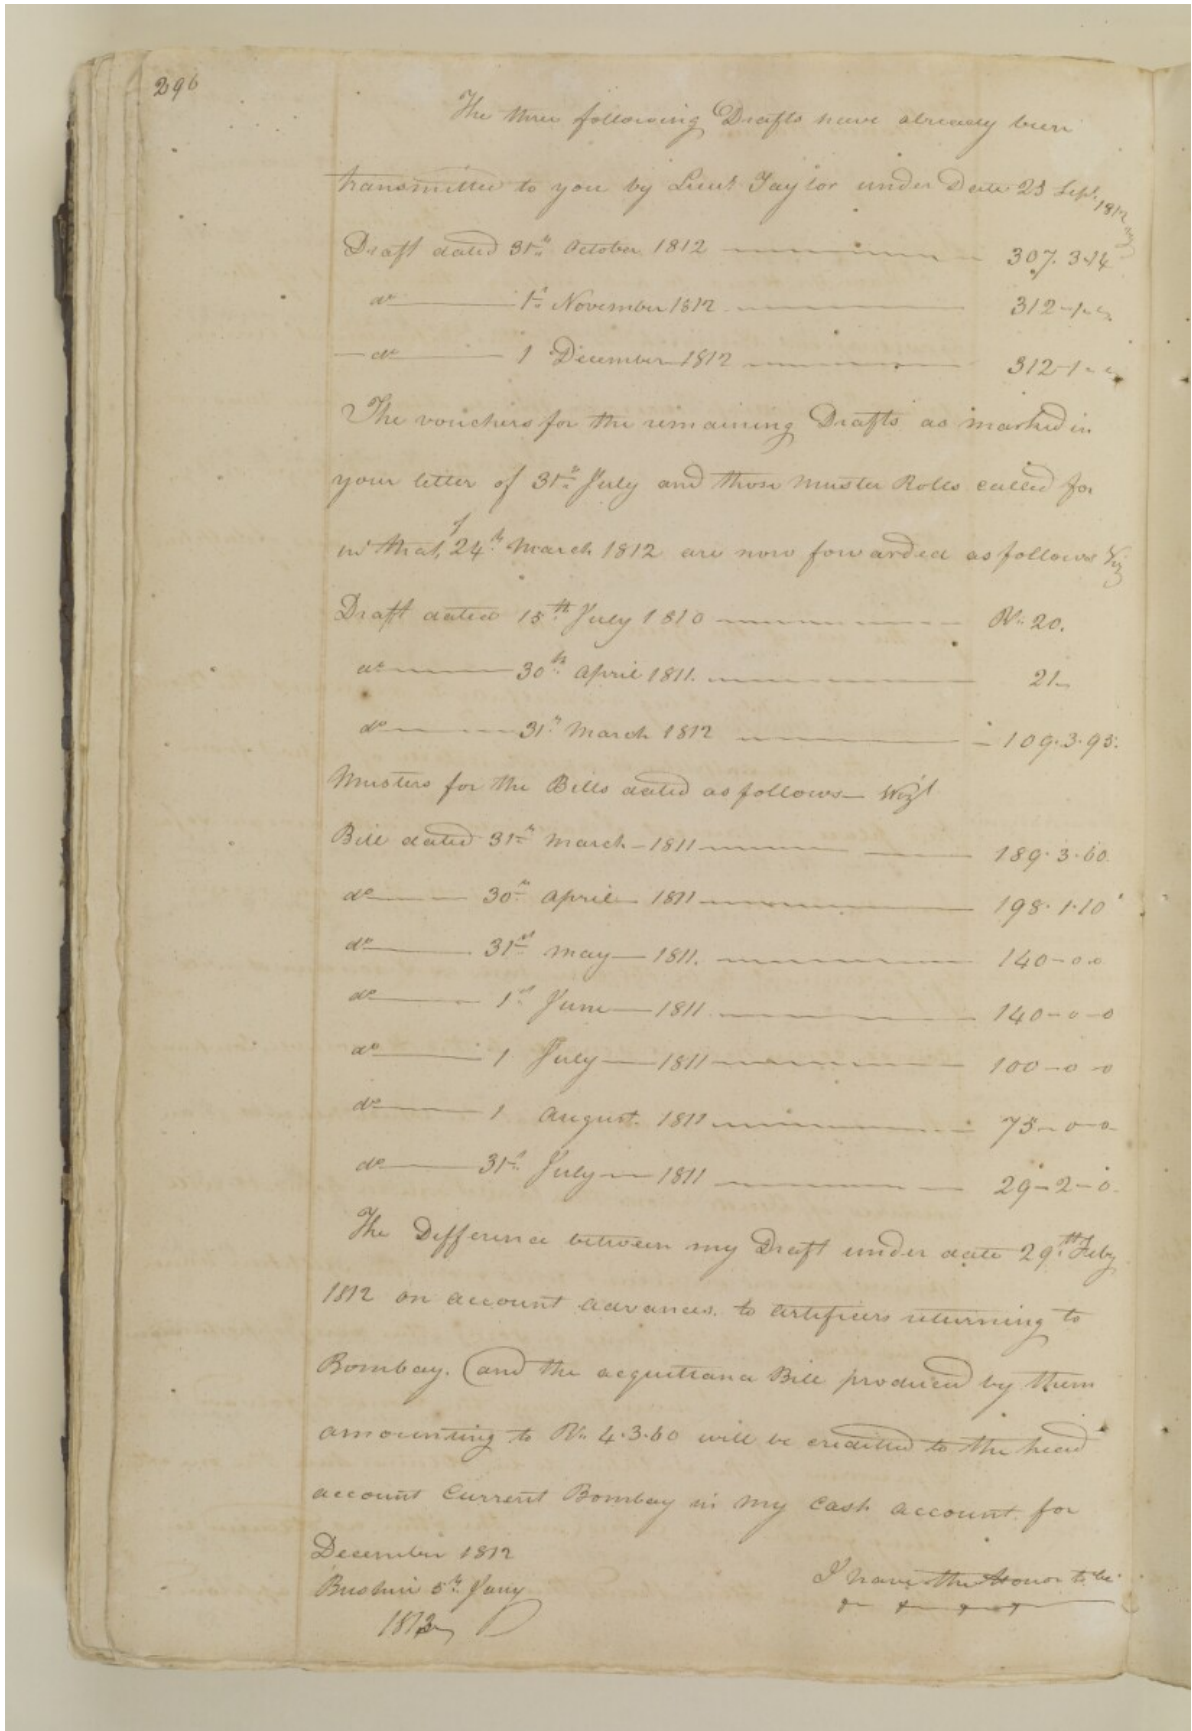 296
The three following Drafts have already been
transmitted to you by Lieut Taylor under Date 23 Sept. 1812 Viz
Draft dated 31st October 1812 307.3.14
do 1st November 1812 312-1-
do 1 December 1812 312-1-
The vouchers for the remaining Drafts as marked in
your letter of 31st July and those Muster Rolls called for
in that of 24th March 1812 are now forwarded as follows Viz
Draft dated 15th July 1810 Rs 20.
do 30th April 1811. 21
do 31st March 1812 109.3.95.
Musters for the Bills dated as follows Vizt
Bill dated 31st March 1811 189.3.60.
do 30th April 1811 198.1.10
do 31st May 1811. 140-0.0
do 1st June 1811. 140-0-0
do 1 July 1811 100-0-0
do 1 August 1811 75-0-0-
do 31st July 1811 29-2-0.
The Difference between my Draft under date 29th Feby
1812 on account advances to artificers returning to
Bombay. (and the acquittance Bill produced by them
amounting to Rs 4.3.60 will be credited to the head
account Current Bombay in my Cash account for
December 1812
Bushire 5th Jany
1813
I have the Honor to be